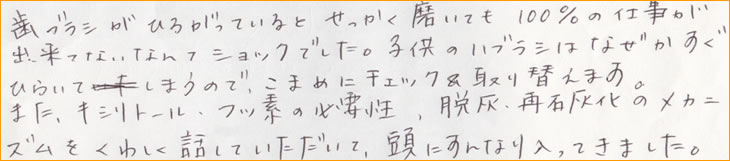 歯ブラシがひろがっているとせっかく磨いても100%の仕事が
出来てないなんてショックでした。子供のハブラシはなぜかすぐ
ひらいてしまうので、こまめにチェック&取り替えます。
また、キシリトール・フッ素の必要性、脱灰・再石灰化のメカニ
ズムをくわしく話していただいて、頭にすんなり入ってきました。